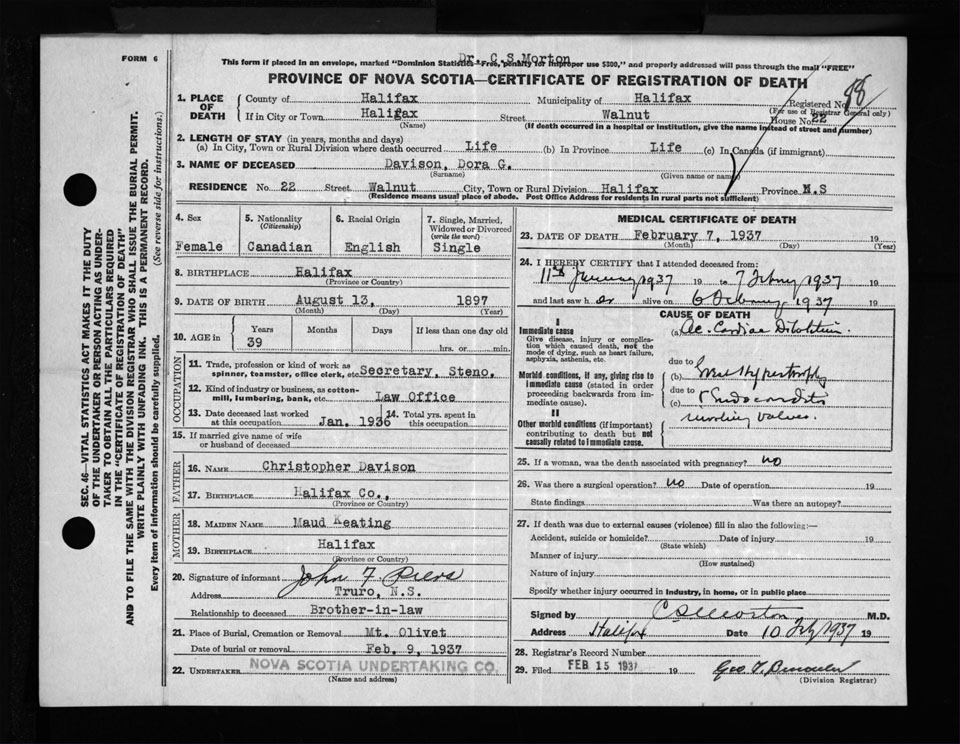 FORM 6
Dr. C.S.Morton
This form if placed in an envelope, marked "Dominion Statistics—Free, penalty for improper use $300," and properly addressed will pass through the mail "FREE"
PROVINCE OF NOVA SCOTIA—CERTIFICATE OF REGISTRATION OF DEATH
1. PLACE OF DEATH
County of Halifax Municipality of Halifax Registered No. 98
(For use of Registrar General only)
If in City or Town Halifax Street Walnut House No. 22
(Name) (If death occurred in a hospital or institution, give the name instead of street and number)
2. LENGTH OF STAY (in years, months and days)
(a) In City, Town or Rural Division where death occurred Life (b) In Province Life (c) In Canada (if immigrant)
3. NAME OF DECEASED Davison, Dora G.
(Surname) (Given name or names)
RESIDENCE No. 22 Street Walnut City, Town or Rural Division Halifax Province N.S
(Residence means usual place of abode. Post Office Address for residents in rural parts not sufficient)
4. Sex
Female
5. Nationality
(Citizenship)
Canadian
6. Racial Origin
English
7. Single, Married, Widowed or Divorced
(write the word)
Single
8. BIRTHPLACE Halifax
(Province or Country)
9. DATE OF BIRTH August 13, 1897
(Month) (Day) (Year)
10. AGE in
Years Months Days If less than one day old
39 hrs. or min.
OCCUPATION
11. Trade, profession or kind of work as spinner, teamster, office clerk, etc. Secretary, Steno,
12. Kind of industry or business, as cotton-mill, lumbering, bank, etc. Law Office
13. Date deceased last worked at this occupation Jan. 1936
14. Total yrs. spent in this occupation
15. If married give name of wife or husband of deceased
FATHER
16. NAME Christopher Davison
17. BIRTHPLACE Halifax Co.,
MOTHER
18. MAIDEN NAME Maud Keating
19. BIRTHPLACE Halifax
(Province or Country)
20. Signature of informant John F Piers
Address Truro, N.S.
Relationship to deceased Brother-in-law
21. Place of Burial, Cremation or Removal Mt. Olivet
Date of burial or removal Feb. 9, 1937
22. UNDERTAKER NOVA SCOTIA UNDERTAKING CO.
(Name and address)
MEDICAL CERTIFICATE OF DEATH
23. DATE OF DEATH February 7, 1937 19
(Month) (Day) (Year)
24. I HEREBY CERTIFY that I attended deceased from:
11th January 1937 19 to 7 Febry 1937
and last saw h er alive on 6 February 1937
CAUSE OF DEATH
I
Immediate cause
Give disease, injury or complication which caused death, not the mode of dying, such as heart failure, asphyxia, asthenia, etc.
(a) Ac. Cardiac
Morbid conditions, if any, giving rise to immediate cause (stated in order proceeding backwards from immediate cause).
due to
(b) Hypertrophy
due to
(c) Endocarditis
valves.
II
Other morbid conditions (if important) contributing to death but not causally related to immediate cause.
25. If a woman, was the death associated with pregnancy? no
26. Was there a surgical operation? no Date of operation 19
State findings Was there an autopsy?
27. If death was due to external causes (violence) fill in also the following:—
Accident, suicide or homicide? Date of injury 19
(State which)
Manner of injury
(How sustained)
Nature of injury
Specify whether injury occurred in industry, in home, or in public place
Signed by C S Morton M.D.
Address Halifax Date 10 Feby 1937 19
28. Registrar's Record Number
29. Filed FEB 15 1937 19 Geo. T.
(Division Registrar)
SEC. 46—VITAL STATISTICS ACT MAKES IT THE DUTY
OF THE UNDERTAKER OR PERSON ACTING AS UNDER-
TAKER TO OBTAIN ALL THE PARTICULARS REQUIRED
IN THE "CERTIFICATE OF REGISTRATION OF DEATH"
AND TO FILE THE SAME WITH THE DIVISION REGISTRAR WHO SHALL ISSUE THE BURIAL PERMIT.
WRITE PLAINLY WITH UNFADING INK. THIS IS A PERMANENT RECORD.
Every item of information should be carefully supplied. (See reverse side for instructions.)